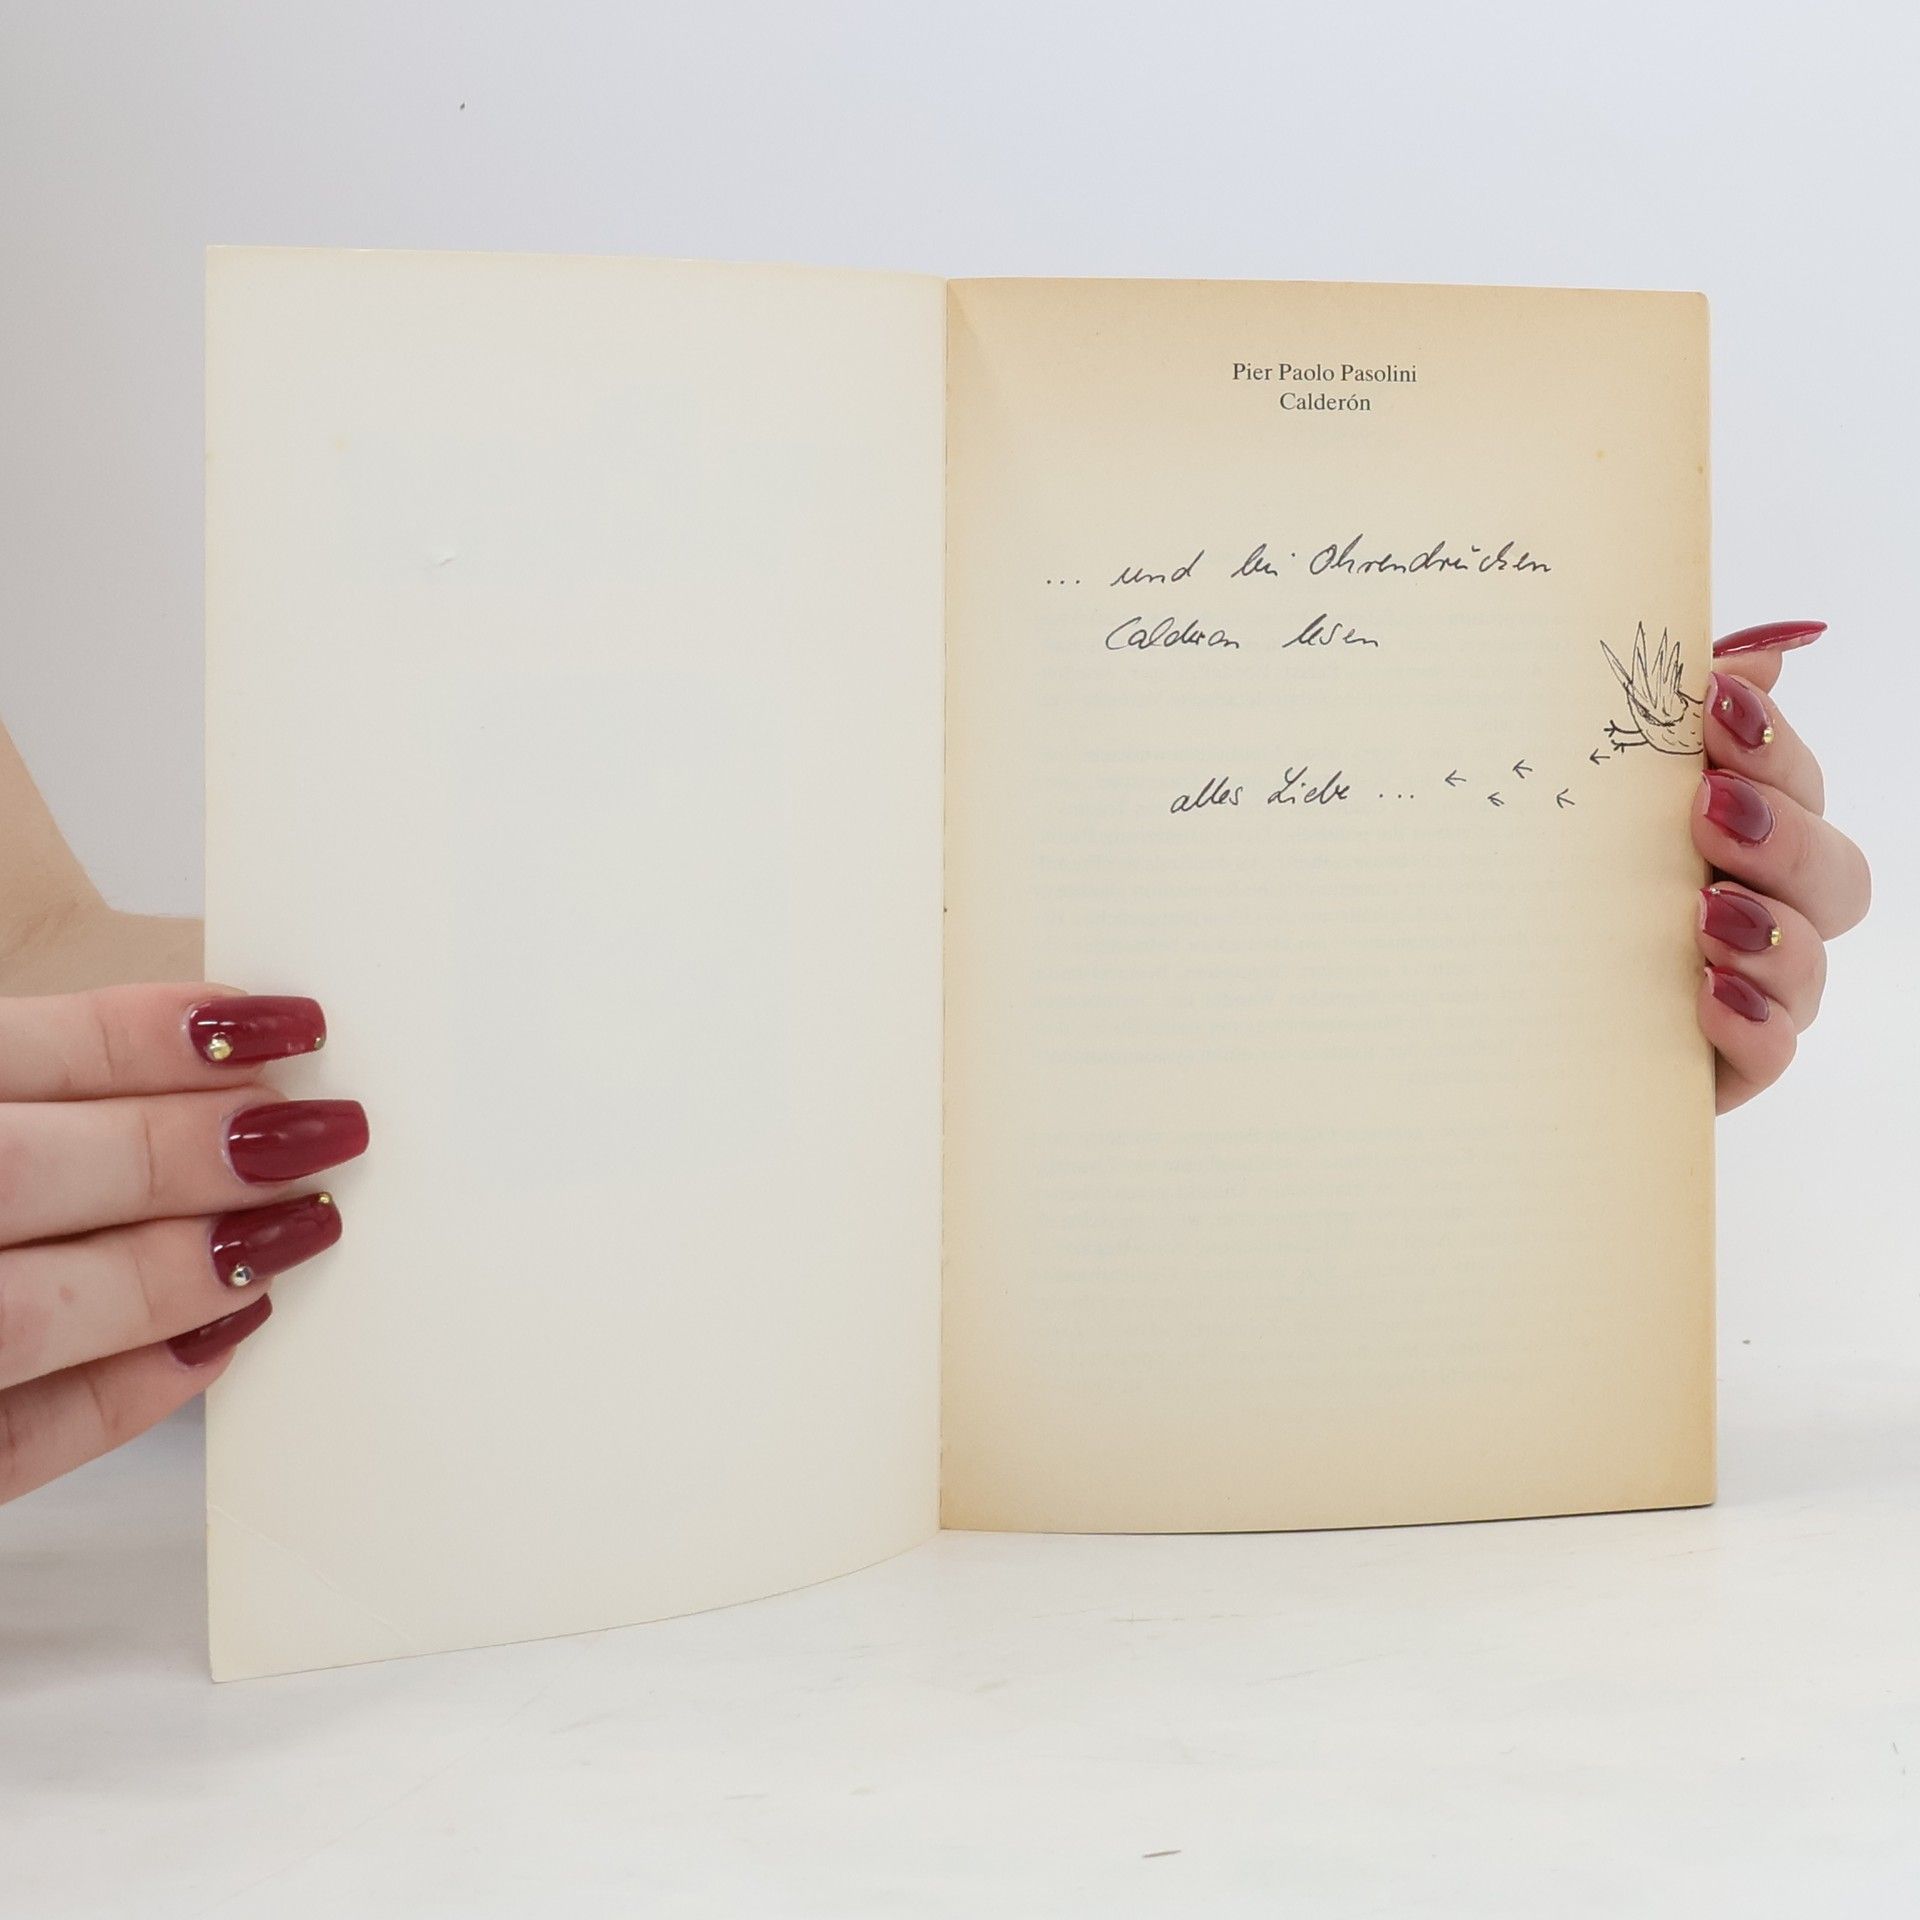 Pier Paolo Pasolini
Calderón
... und bei Ohrendrücken
Calderon lesen
alles Liebe ...